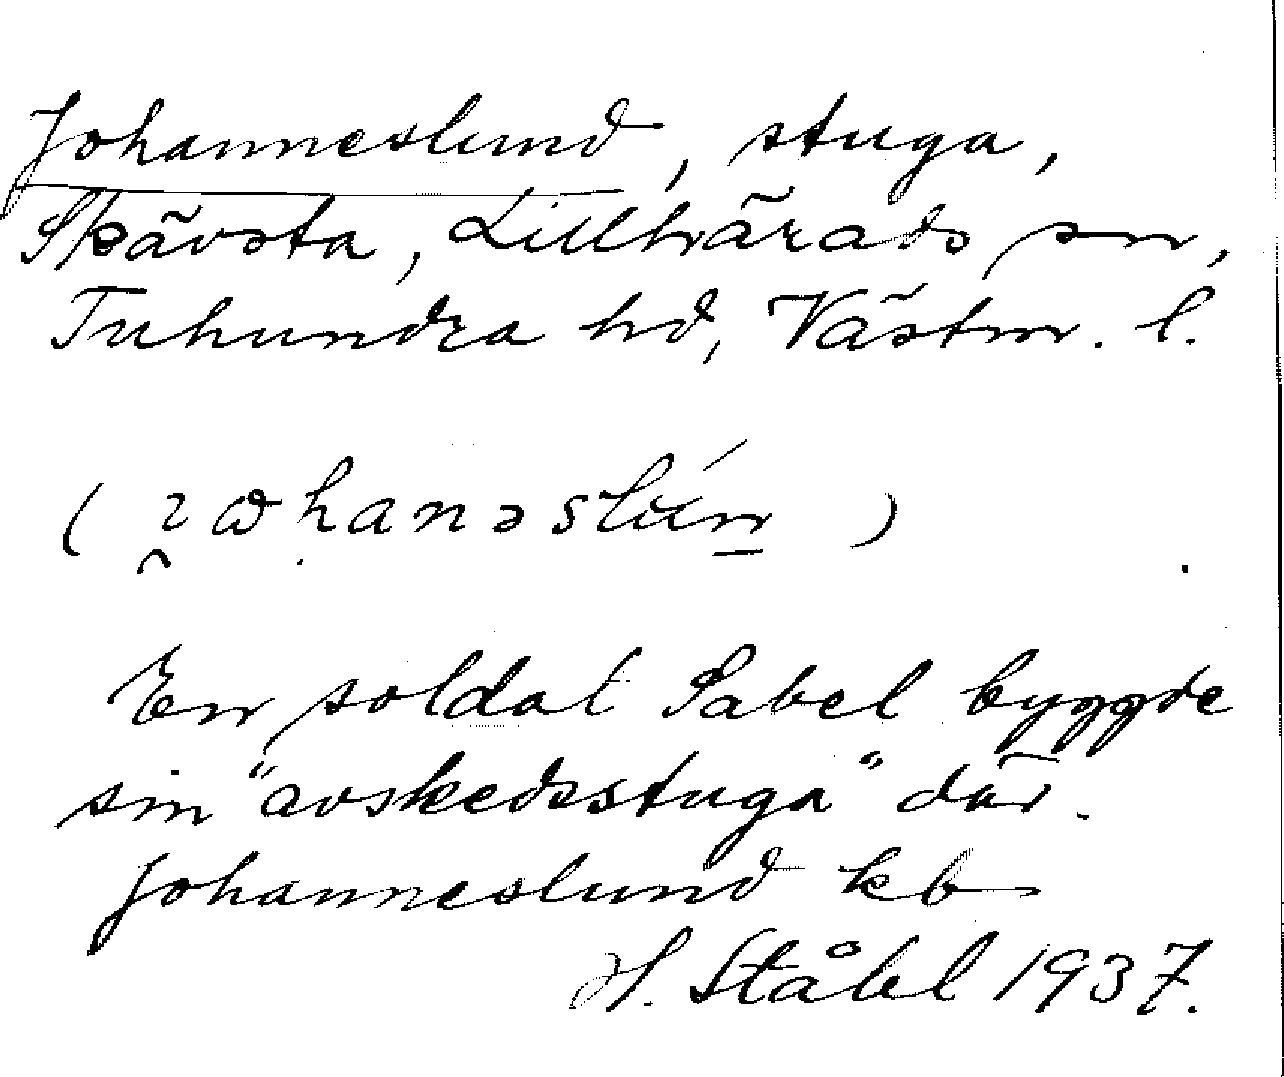 Johanneslund, stuga,
Skävsta, Lillhärads sn,
Tuhundra hd, Västm. l.
En soldat Sabel byggde
sin "avskedsstuga" där.
Johanneslund kb
H. Ståhl 1937.